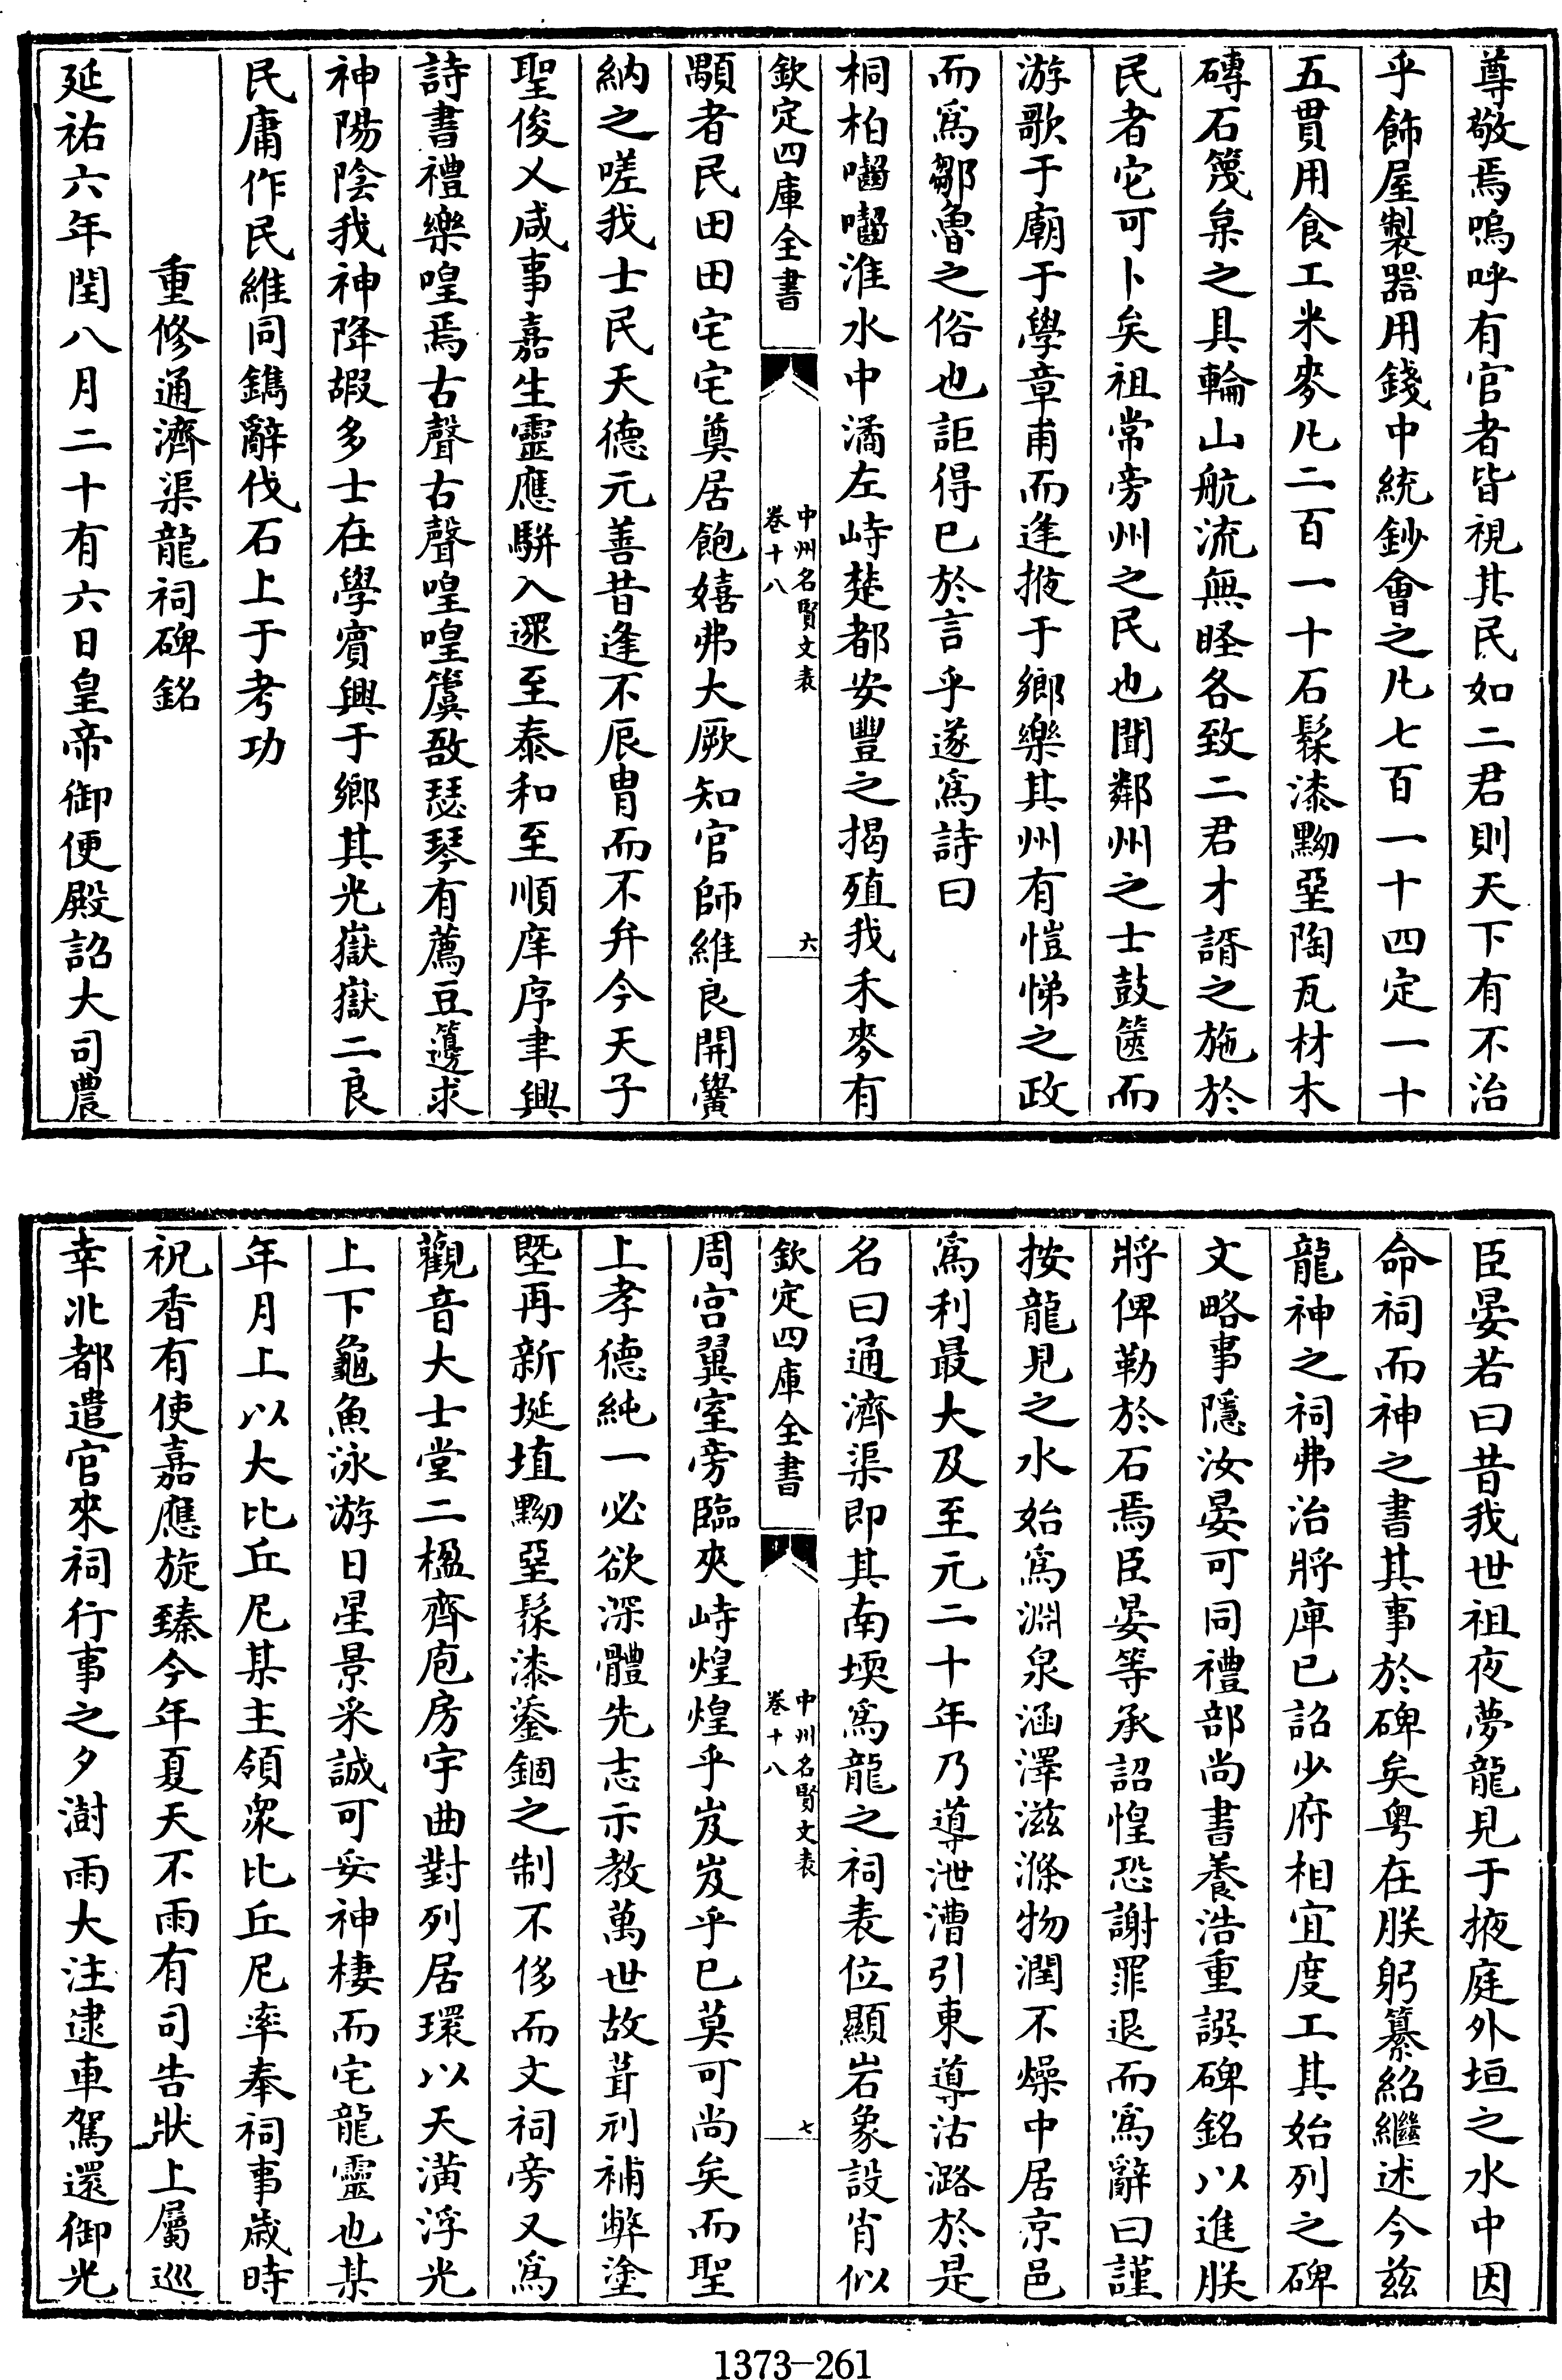 尊敬焉嗚呼有官者皆視其民如二君則天下有不治
乎飾屋製器用錢中統鈔會之凡七百一十四定一十
五貫用食工米麥凡二百一十石髹漆黝堊陶瓦材木
磚石篾枲之具輪山航流無怪各致二君才諝之施於
民者它可卜矣祖常旁州之民也聞鄰州之士鼓篋而
游歌于廟于學章甫而逢掖于鄉樂其州有愷悌之政
而爲鄒魯之俗也詎得已於言乎遂爲詩曰
桐柏嶓嶓淮水中潏左峙楚都安豐之揭殖我禾麥有
欽定四庫全書
中州名賢文表
卷十八
六
顒者民田田宅宅奠居飽嬉弗大厥知官師維良開黌
納之嗟我士民天德元善昔逢不辰冑而不弁今天子
聖俊乂咸事嘉生靈應駢入遝至泰和至順庠序聿興
詩書禮樂喤焉古聲古聲喤喤簴敔瑟琴有薦豆籩求
神陽陰我神降嘏多士在學賓興于鄉其光嶽嶽二良
民庸作民維同鐫辭伐石上于考功
重修通濟渠龍祠碑銘
延祐六年閏八月二十有六日皇帝御便殿詔大司農
臣晏若曰昔我世祖夜夢龍見于掖庭外垣之水中因
命祠而神之書其事於碑矣粵在朕躬纂紹繼述今兹
龍神之祠弗治將庳已詔少府相宜度工其始列之碑
文略事隱汝晏可同禮部尚書養浩重譔碑銘以進朕
將俾勒於石焉臣晏等承詔惶恐謝罪退而爲辭曰謹
按龍見之水始爲淵泉涵澤滋滌物潤不燥中居京邑
爲利最大及至元二十年乃導泄漕引東導沽潞於是
名曰通濟渠即其南堧爲龍之祠表位顯岩象設肖似
欽定四庫全書
中州名賢文表
卷十八
七
周宫翼室旁臨夾峙煌煌乎岌岌乎已莫可尚矣而聖
上孝德純一必欲深體先志示教萬世故葺刓補弊塗
塈再新埏埴黝堊髹漆鋈錮之制不侈而文祠旁又爲
觀音大士堂二楹齊庖房宇曲對列居環以天潢浮光
上下龜魚泳游日星景采誠可妥神棲而宅龍靈也某
年月上以大比丘尼某主領衆比丘尼率奉祠事歲時
祝香有使嘉應旋臻今年夏天不雨有司告狀上屬巡
幸北都遣官來祠行事之夕澍雨大注逮車駕還御光
1373-261